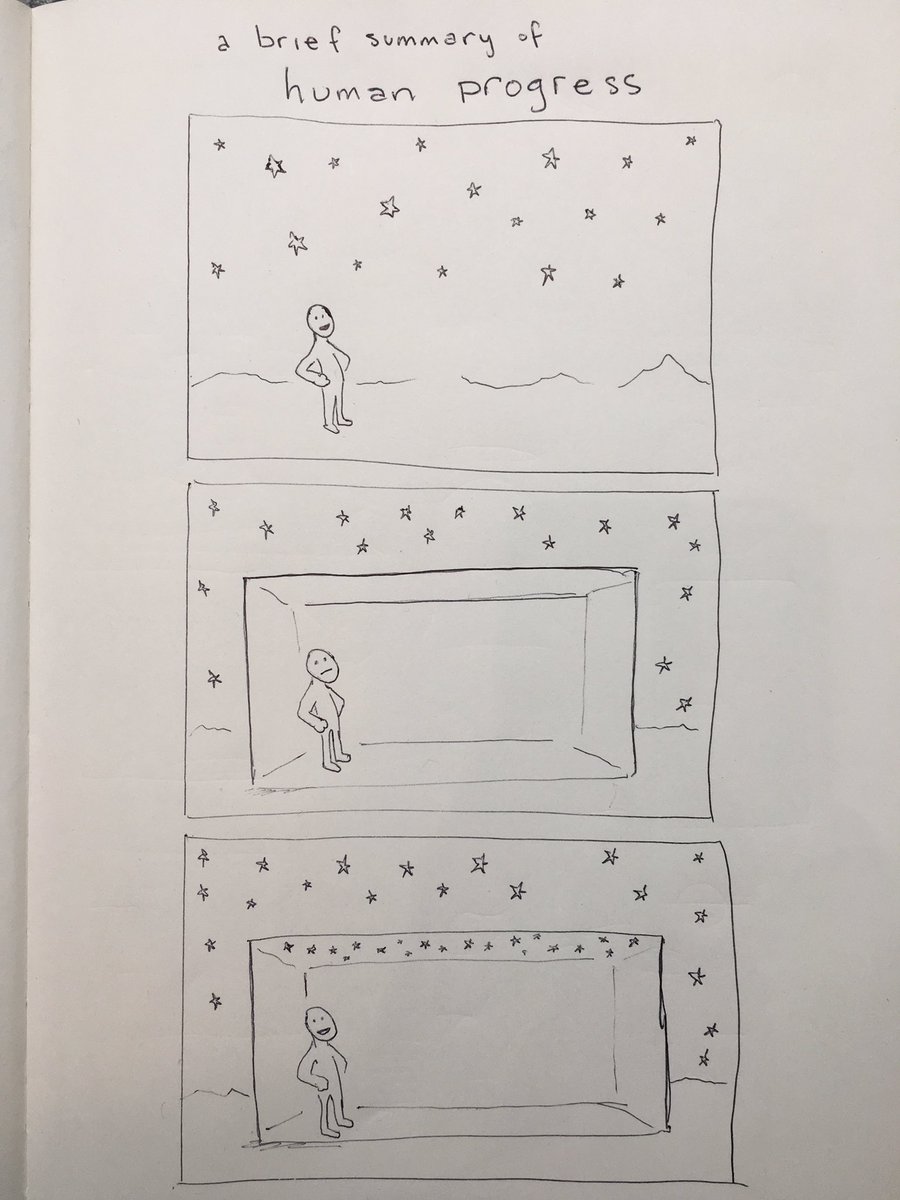 a brief summary of
human progress